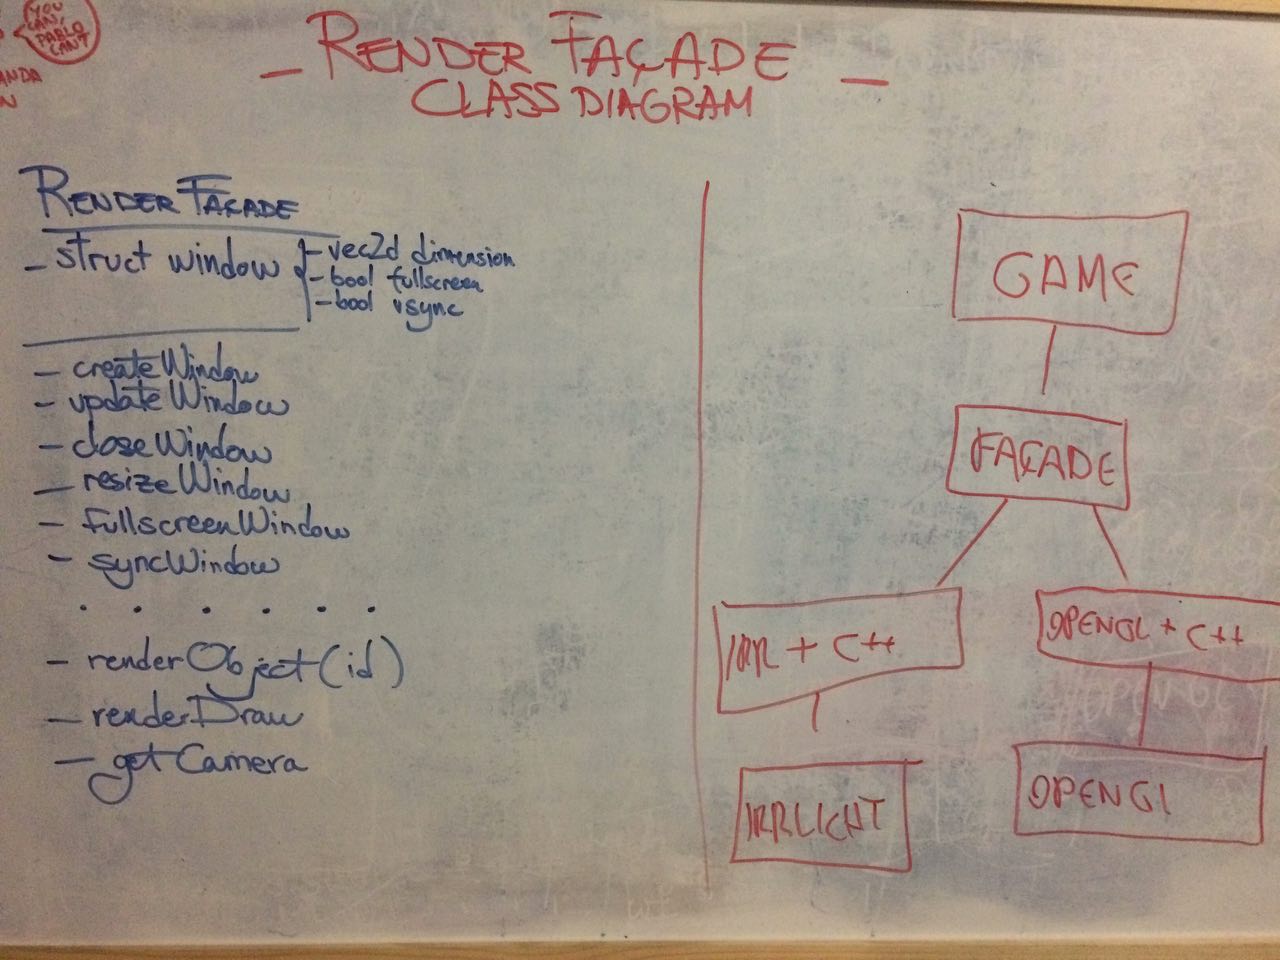 YOU
CAN,
PABLO
CAN'T
_ RENDER FAÇADE _
CLASS DIAGRAM
RENDER FAÇADE
- struct window
- vec2d dimension
- bool fullscreen
- bool vsync
- createWindow
- updateWindow
- closeWindow
- resizeWindow
- fullscreenWindow
- syncWindow
. . . . . .
- renderObject(id)
- renderDraw
- getCamera
GAME
FAÇADE
IRR + C++
OPENGL + C++
IRRLICHT
OPENGL